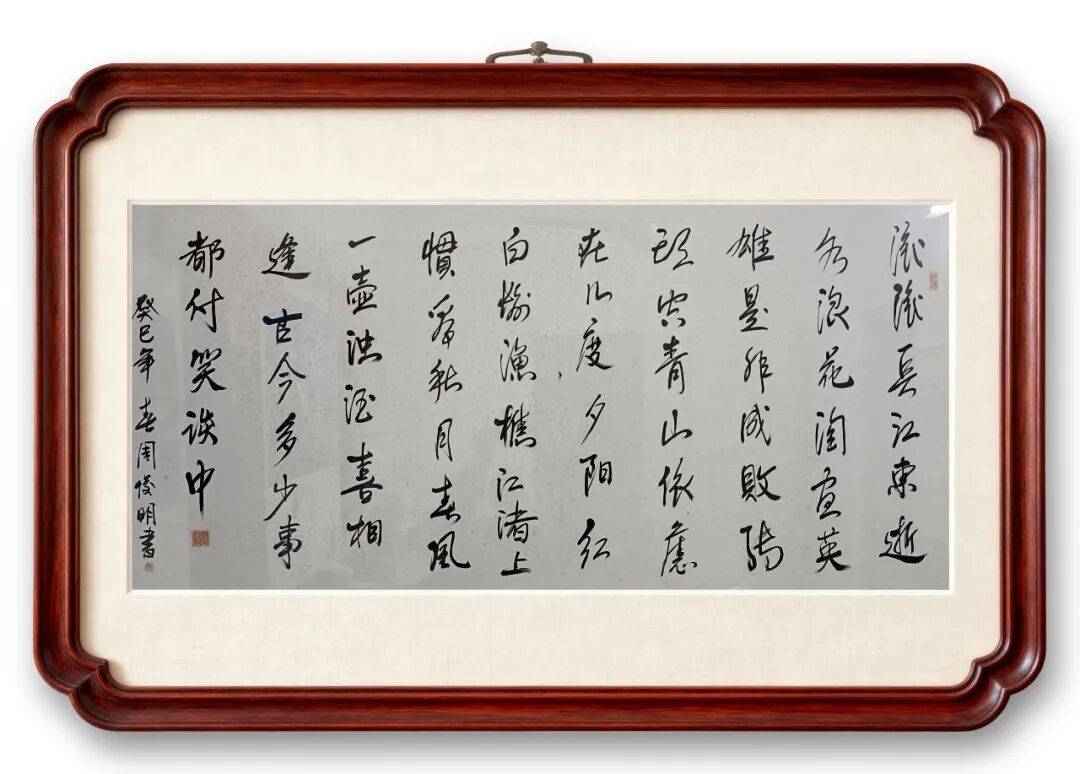 滚滚長江東逝
水浪花淘盡英
雄是非成敗轉
頭空青山依舊
在几度夕阳红
白髮漁樵江渚上
慣看秋月春風
一壺浊酒喜相
逢古今多少事
都付笑談中
癸巳年春周俊明書